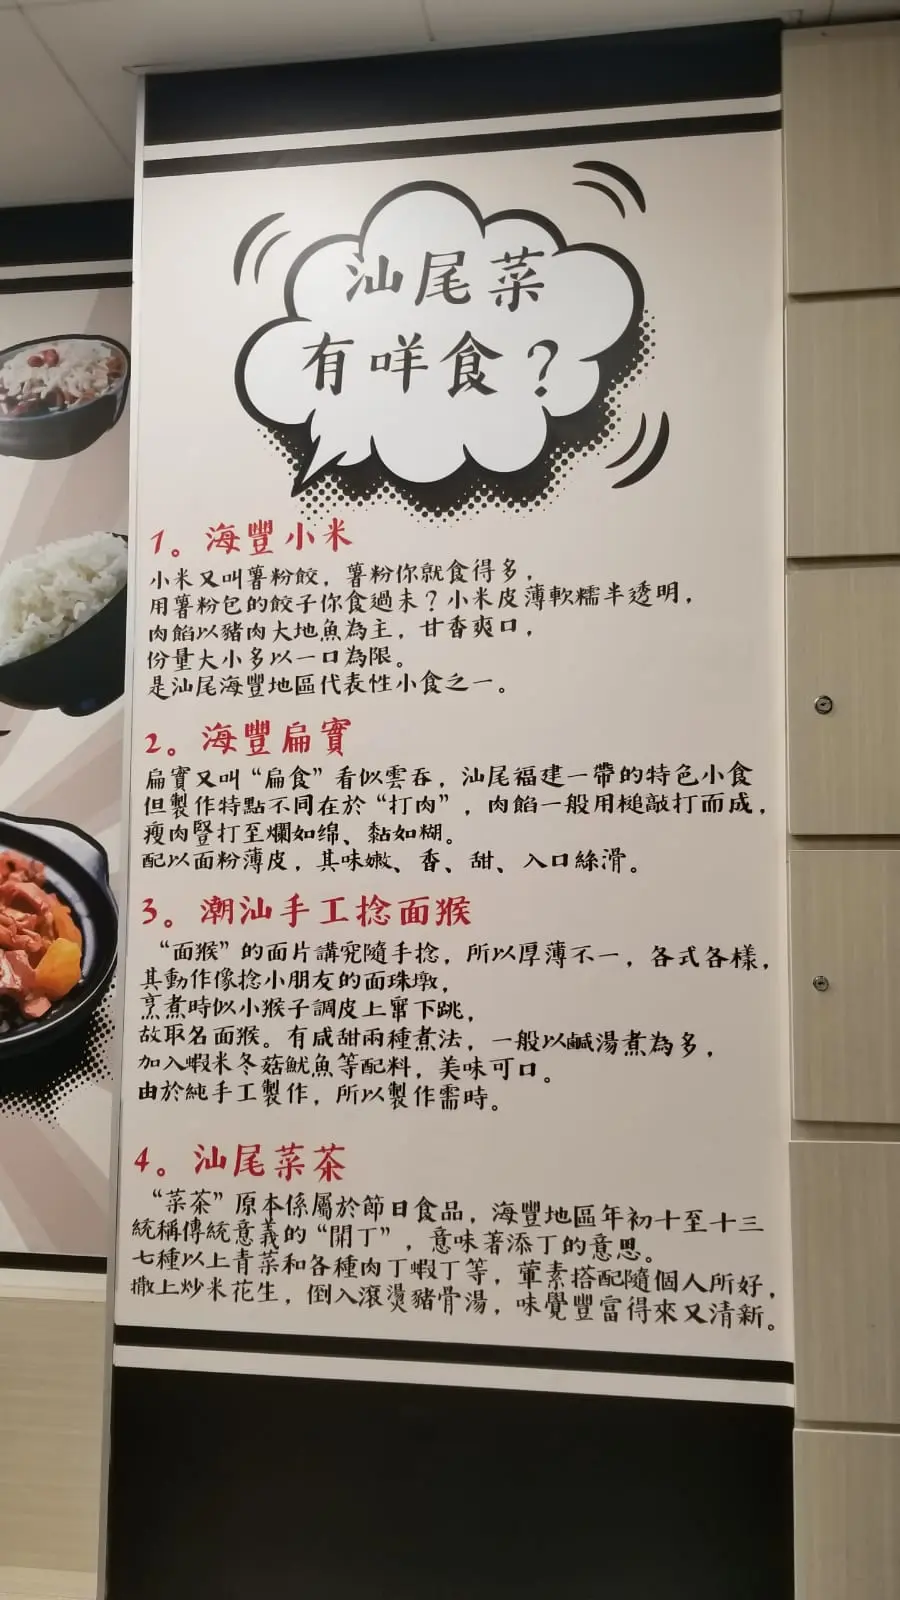 汕尾菜
有咩食?
1。海豐小米
小米又叫薯粉餃，薯粉你就食得多，
用薯粉包的餃子你食過未?小米皮薄軟糯半透明，
肉餡以豬肉大地魚為主，甘香爽口，
份量大小多以一口為限。
是汕尾海豐地區代表性小食之一。
2。海豐扁實
扁實又叫“扁食”看似雲吞，汕尾福建一帶的特色小食
但製作特點不同在於“打肉”，肉餡一般用槌敲打而成，
瘦肉豎打至爛如绵、黏如糊。
配以面粉薄皮，其味嫩、香、甜、入口絲滑。
3。潮汕手工捻面猴
“面猴”的面片講究隨手捻，所以厚薄不一，各式各樣，
其動作像捻小朋友的面珠墩，
烹煮時似小猴子調皮上竄下跳，
故取名面猴。有咸甜兩種煮法，一般以鹹湯煮為多，
加入蝦米冬菇魷魚等配料，美味可口。
由於純手工製作，所以製作需時。
4。汕尾菜茶
“菜茶”原本係屬於節日食品，海豐地區年初十至十三
統稱傳統意義的“開丁”，意味著添丁的意思。
七種以上青菜和各種肉丁蝦丁等，葷素搭配隨個人所好，
撒上炒米花生，倒入滾燙豬骨湯，味覺豐富得來又清新。